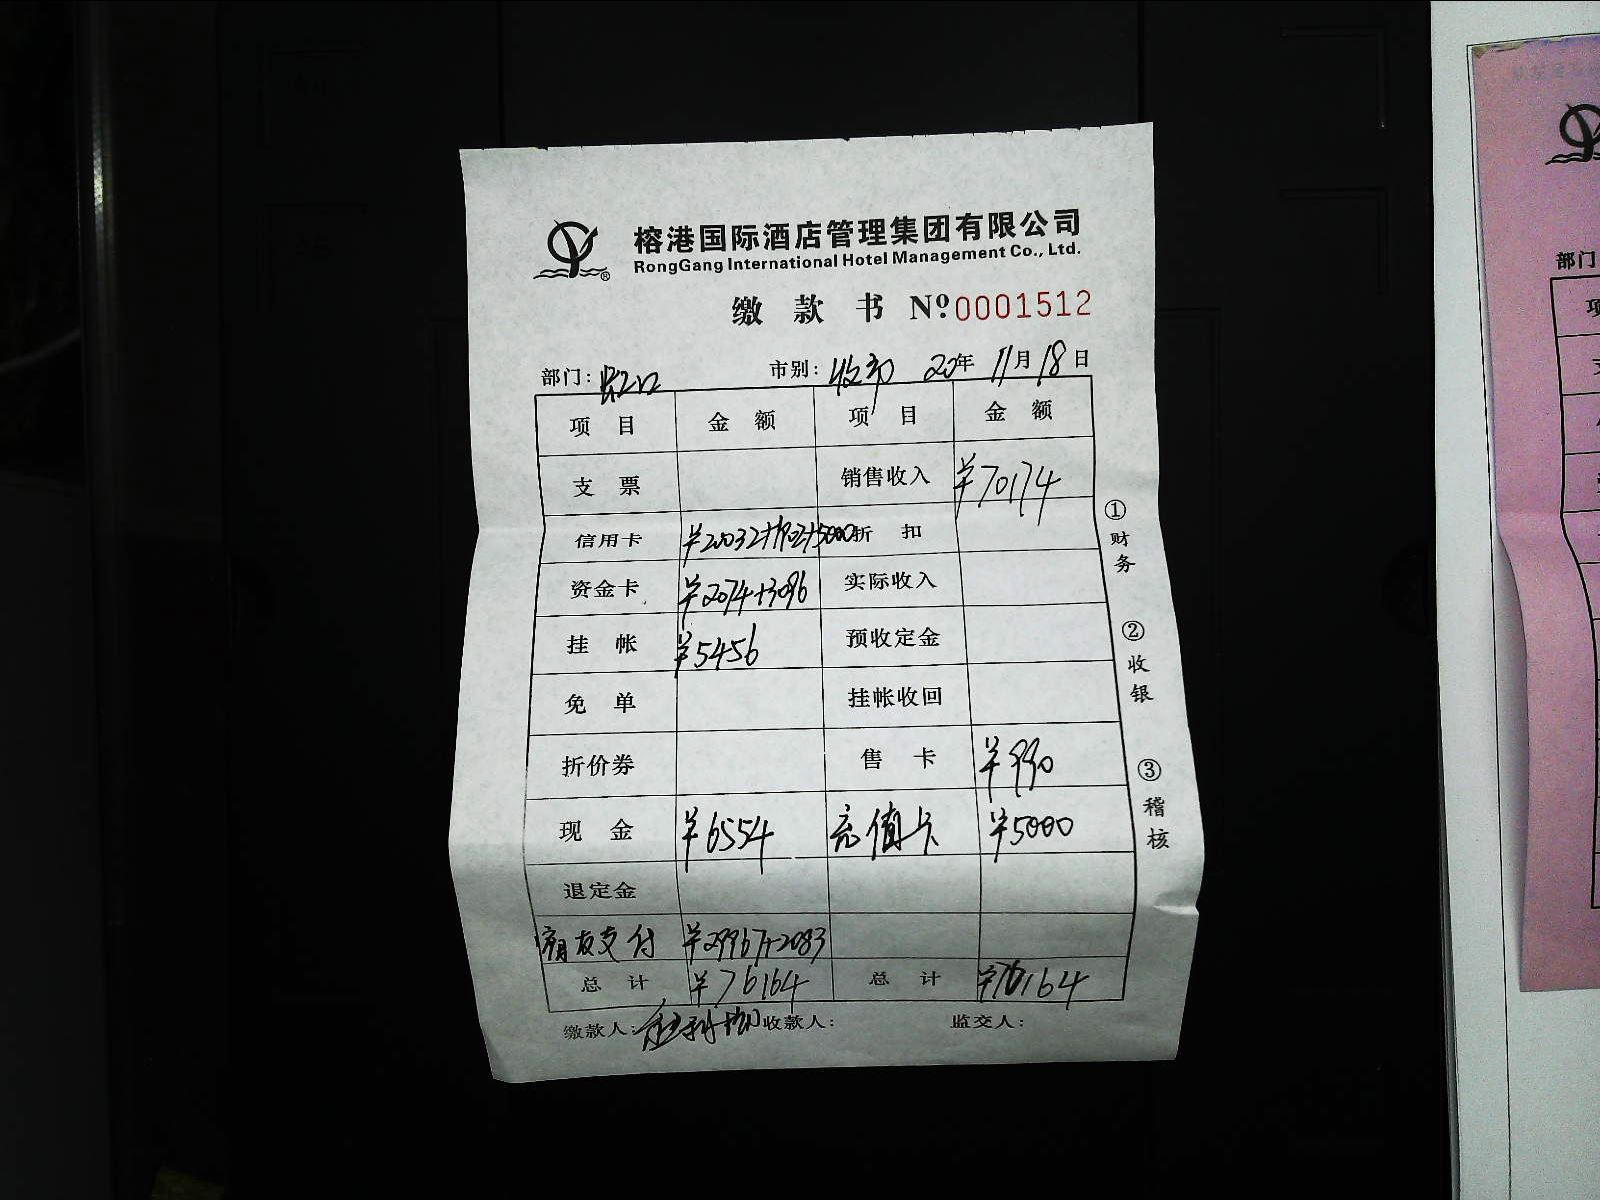 榕港国际酒店管理集团有限公司
RongGang International Hotel Management Co., Ltd.
缴 款 书 Nº 0001512
部门: 虹口 市别: 收动 20年 11月 18日
项 目 金 额 项 目 金 额
支 票 销售收入 ¥70174
信用卡 ¥20032+1902+5000 折 扣
资金卡 ¥2074+3096 实际收入
挂 帐 ¥5456 预收定金
免 单 挂帐收回
折价券 售 卡 ¥990
现 金 ¥6554 充值卡 ¥5000
退定金
支付 ¥29967+2083
总 计 ¥76164 总 计 ¥76164
缴款人: 收款人: 监交人:
①财务
②收银
③稽核
部门